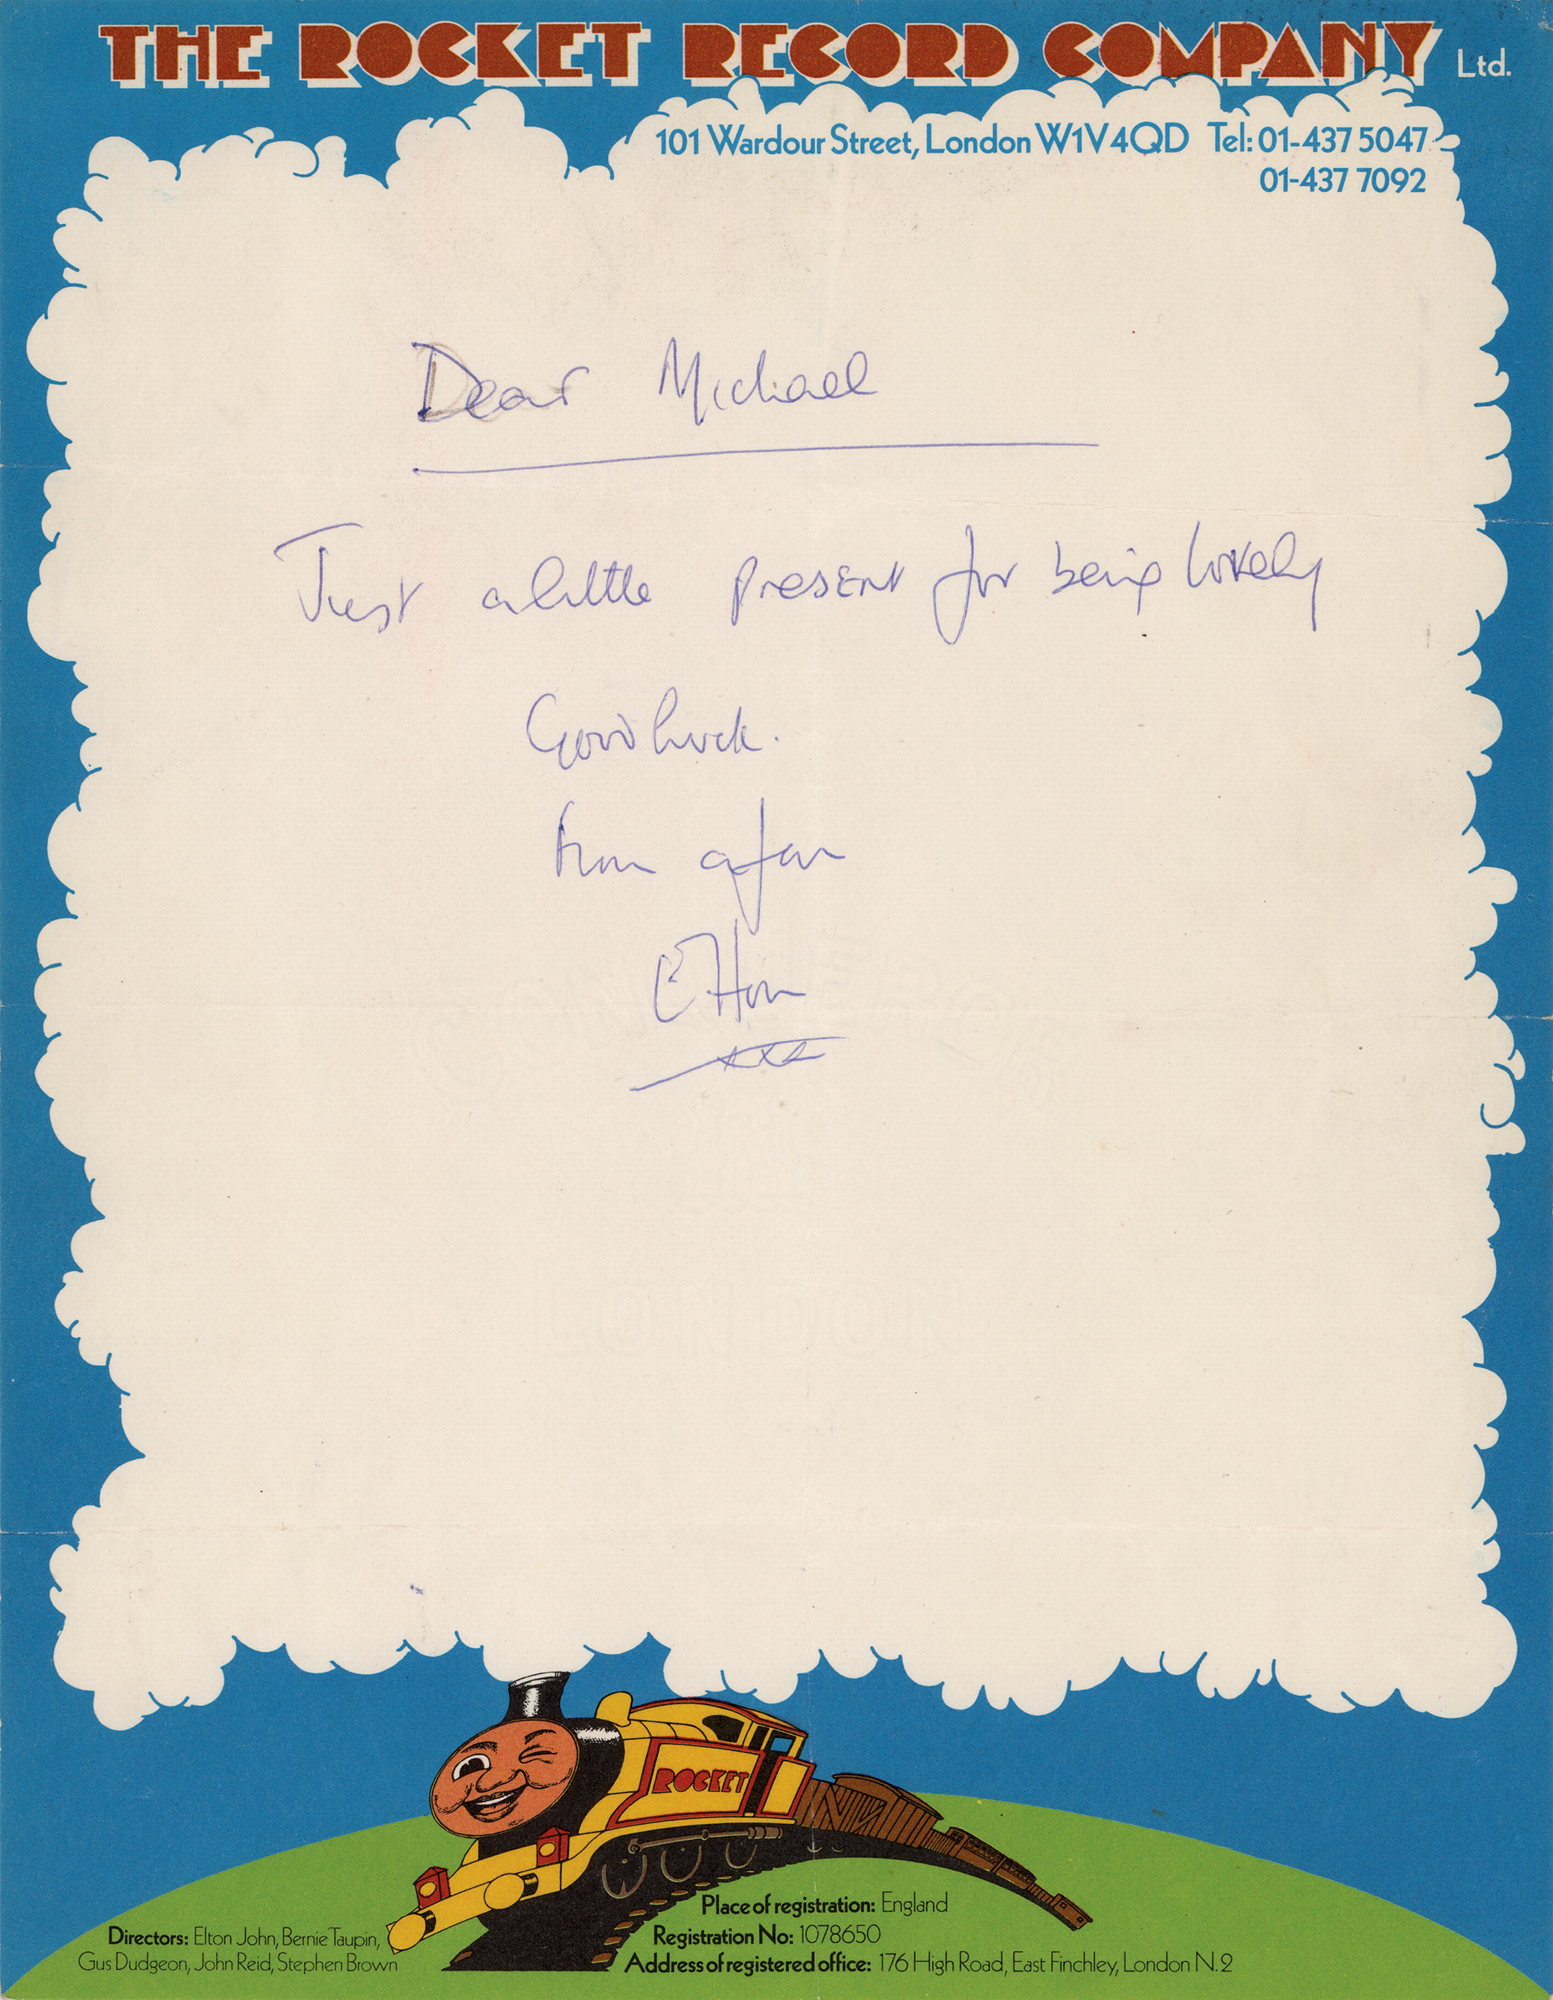 THE ROCKET RECORD COMPANY Ltd.
101 Wardour Street, London W1V 4QD Tel: 01-437 5047
01-437 7092
Dear Michael
Just a little present for being lovely
Good luck.
from afar
Elton
xxx
ROCKET
Place of registration: England
Directors: Elton John, Bernie Taupin,
Gus Dudgeon, John Reid, Stephen Brown
Registration No: 1078650
Address of registered office: 176 High Road, East Finchley, London N.2